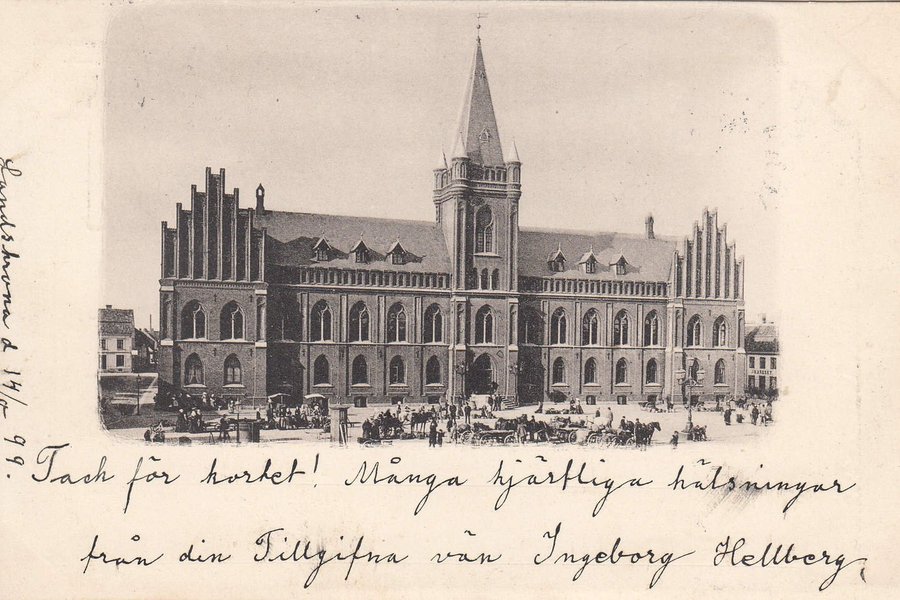 Landskrona d 14/5 99.
Tack för kortet! Många hjärtliga hälsningar
från din Tillgifna vän Ingeborg Hellberg